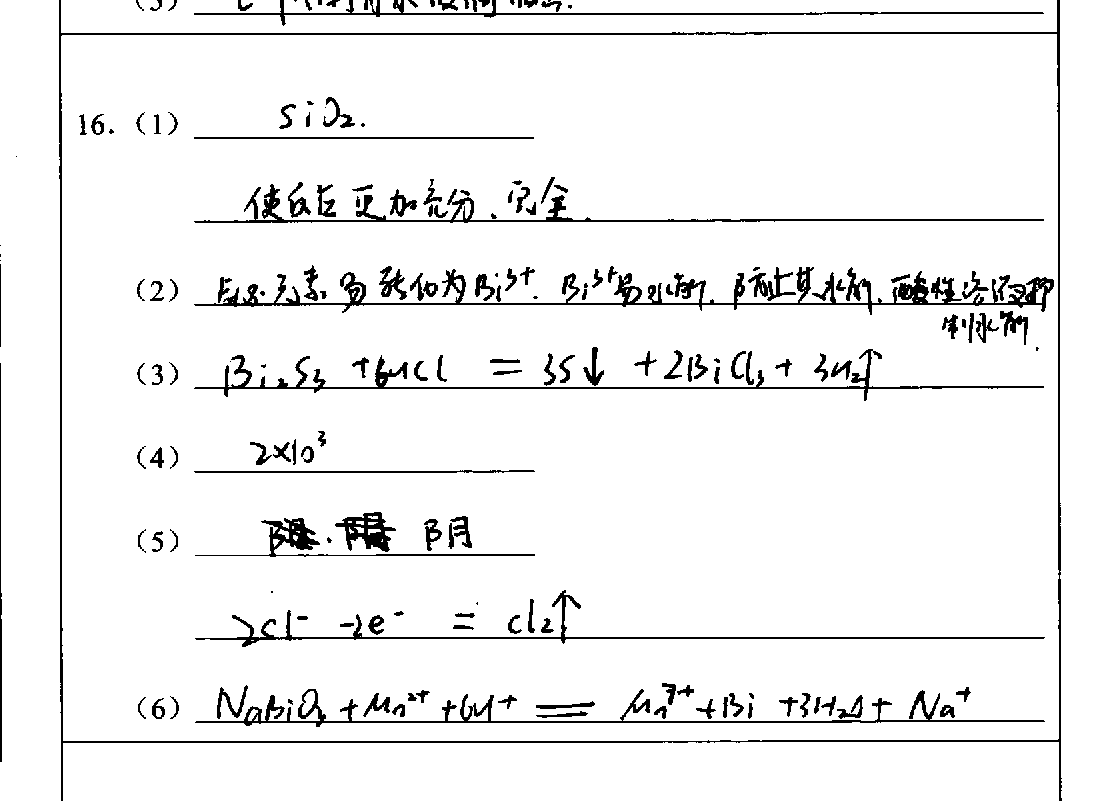 (5)
16. (1) SiO₂.
使反应更加充分、完全.
(2) 元素易转化为Bi³⁺. Bi³⁺易水解. 防止其水解. 酸性溶液可抑
制水解.
(3) Bi₂S₃ + 6HCl = 3S↓ + 2BiCl₃ + 3H₂↑
(4) 2×10³
(5) 阴
2Cl⁻ -2e⁻ = Cl₂↑
(6) NaBiO₃ + Mn²⁺ + 6H⁺ = Mn⁷⁺ + Bi + 3H₂O + Na⁺